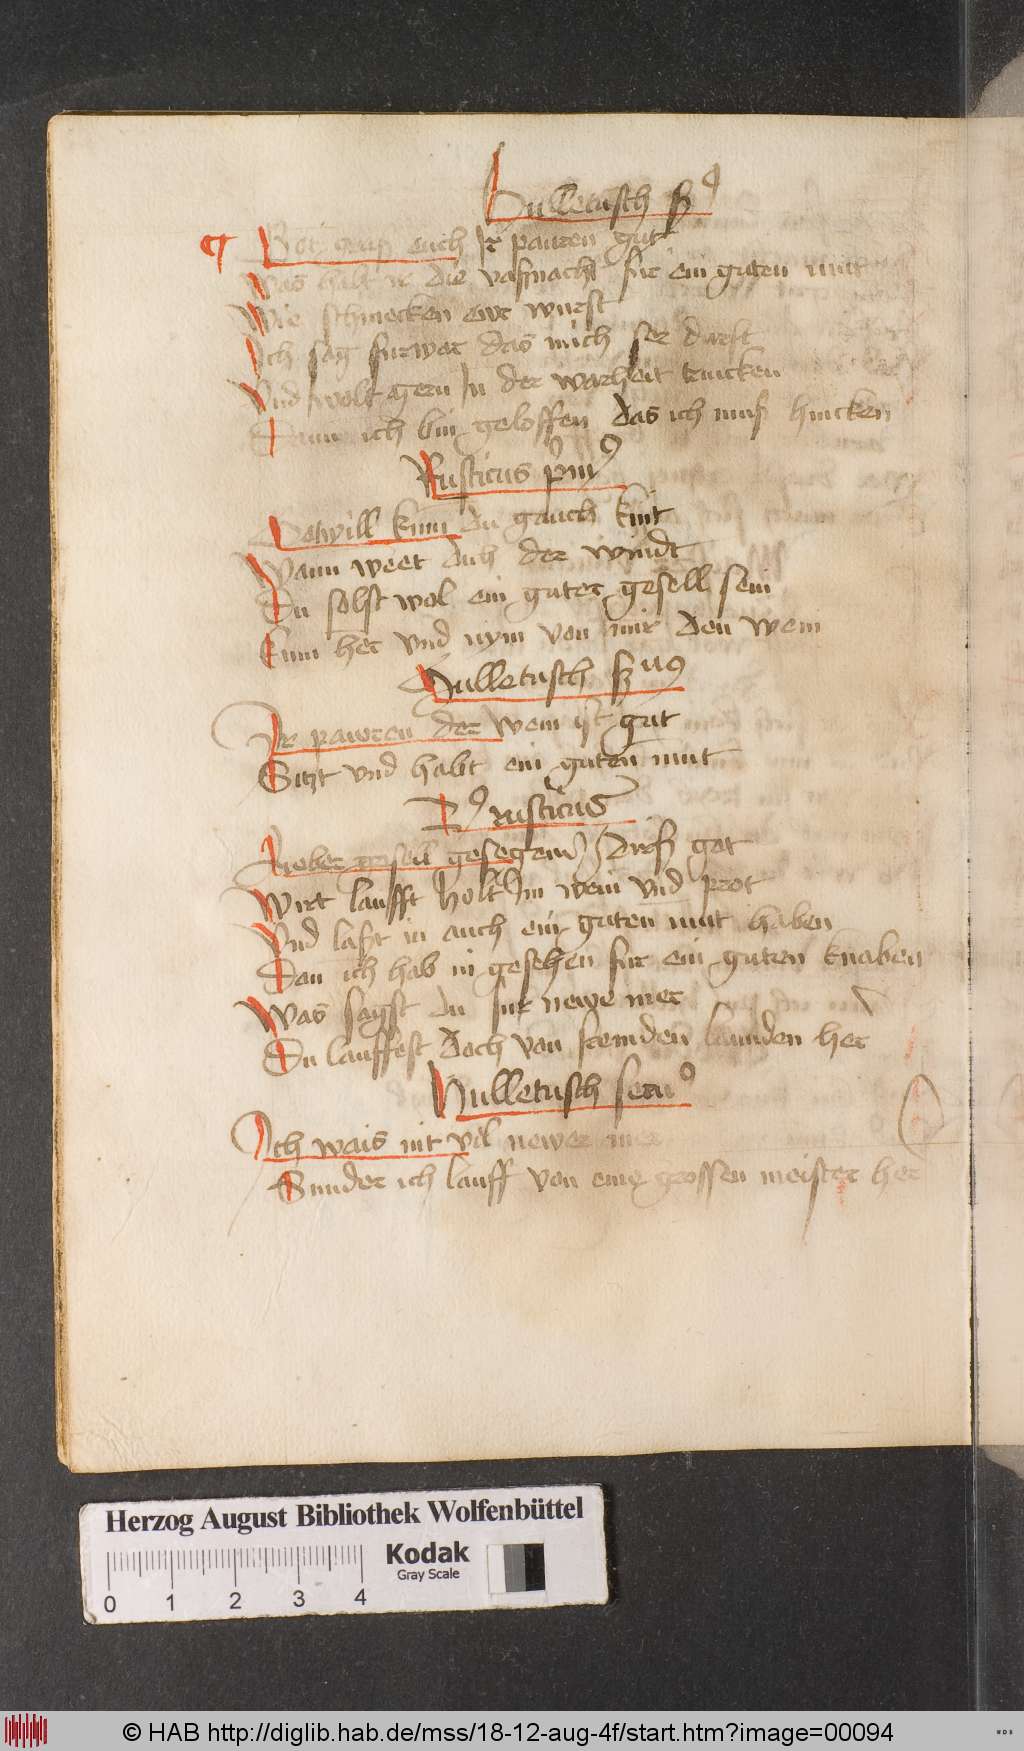 Hulletusch
Got grus euch Ir pauren gut
Was habt ir die vasnacht fur ein guten mut
Wie schmecken ewr wurst
Ich sag furwar das mich ser durst
Vnd wolt gern In der warheit trincken
Dann ich bin geloffen das ich mus hincken
Rusticus
kum du gauch knit
Wann weet dich der windt
Du solst wol ein guter gesell sein
Kum her vnd nym von mir den wein
Hulletusch
Ir pauren der wein ist gut
Sitzt vnd habt ein guten mut
rusticus
Lieber gesell gesegen dirs got
Wirt laufft holt Im wein vnd prot
Vnd last in auch ein guten mut haben
Dan ich hab in gesehen fur ein guten knaben
Was sagst du fur newe mer
Du lauffest doch von fremden lannden her
Hulletusch
Ich wais nit vil newer mer
Sunder ich lauff von eine grossen meister her
Herzog August Bibliothek Wolfenbüttel
Kodak
Gray Scale
0 1 2 3 4
© HAB http://diglib.hab.de/mss/18-12-aug-4f/start.htm?image=00094